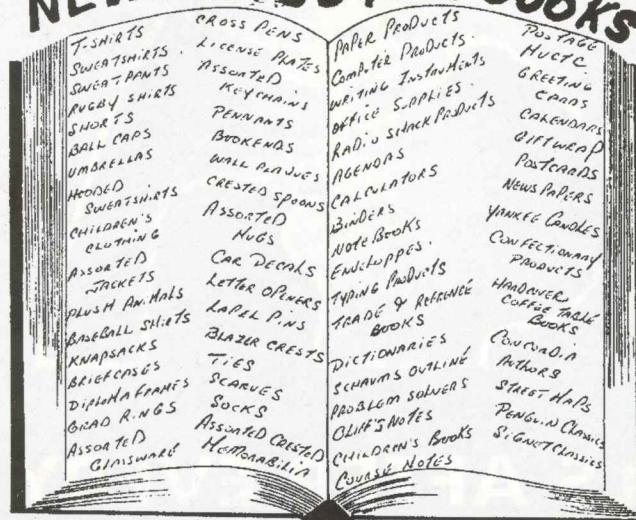 BOOKS
T-SHIRTS
SWEATSHIRTS.
SWEATPANTS
RUGBY SHIRTS
SHORTS
BALL CAPS
UMBRELLAS
HOODED
SWEATSHIRTS
CHILDREN'S
CLOTHING
ASSORTED
JACKETS
PLUSH ANIMALS
BASEBALL SHIRTS
KNAPSACKS
BRIEFCASES
DIPLOMA FRAMES
GRAD RINGS
ASSORTED
GLASSWARE
CROSS PENS
LICENSE PLATES
ASSORTED
KEYCHAINS
PENNANTS
BOOKENDS
WALL PLAQUES
CRESTED SPOONS
ASSORTED
MUGS
CAR DECALS
LETTER OPENERS
LAPEL PINS
BLAZER CRESTS
TIES
SCARVES
SOCKS
ASSORTED CRESTED
MEMORABILIA
PAPER PRODUCTS
COMPUTER PRODUCTS.
WRITING INSTRUMENTS
OFFICE SUPPLIES.
RADIO SHACK PRODUCTS
AGENDAS
CALCULATORS
BINDERS
NOTE BOOKS
ENVELOPPES.
TYPING PRODUCTS
TRADE & REFERENCE
BOOKS
DICTIONARIES
SCHAUMS OUTLINE
PROBLEM SOLVERS
CLIFF'S NOTES
CHILDREN'S BOOKS
COURSE NOTES
POSTAGE
MUCTC
GREETING
CARDS
CALENDARS
GIFTWRAP
POSTCARDS
NEWSPAPERS
YANKEE CANDLES
CONFECTIONARY
PRODUCTS
HARDCOVER
COFFEE TABLE
BOOKS
CONCORDIA
AUTHORS
STREET MAPS
PENGUIN CLASSICS
SIGNET CLASSICS